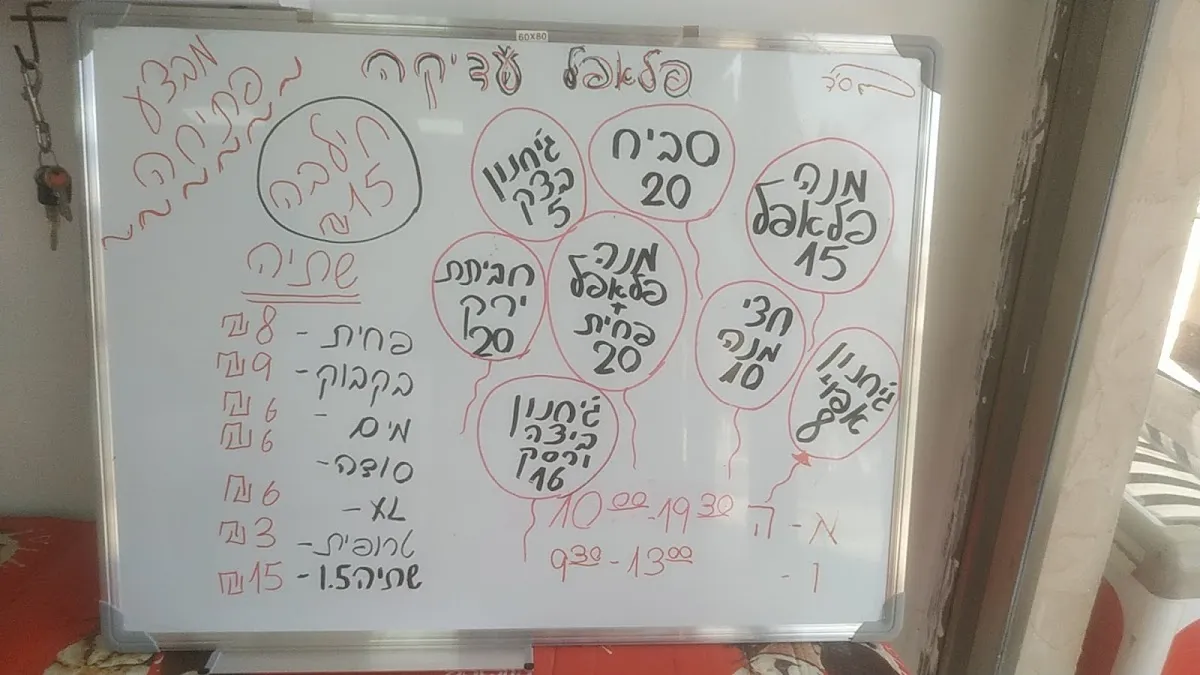 60X80
בס״ד
פלאפל עדיקה
מבצע
פתיחה
חילבה
15 ₪
מנה
פלאפל
15
סביח
20
ג'חנון
בצק
5
חביתת
ירק
20
מנה
פלאפל
+
פחית
20
חצי
מנה
10
ג'חנון
אפוי
8
ג'חנון
ביצה
ורסק
16
שתיה
פחית - 8 ₪
בקבוק - 9 ₪
מים - 6 ₪
סודה - 6 ₪
XL - 6 ₪
טרופית - 3 ₪
שתיה 1.5 - 15 ₪
א - ה 10:00-19:30
ו - 9:30-13:00